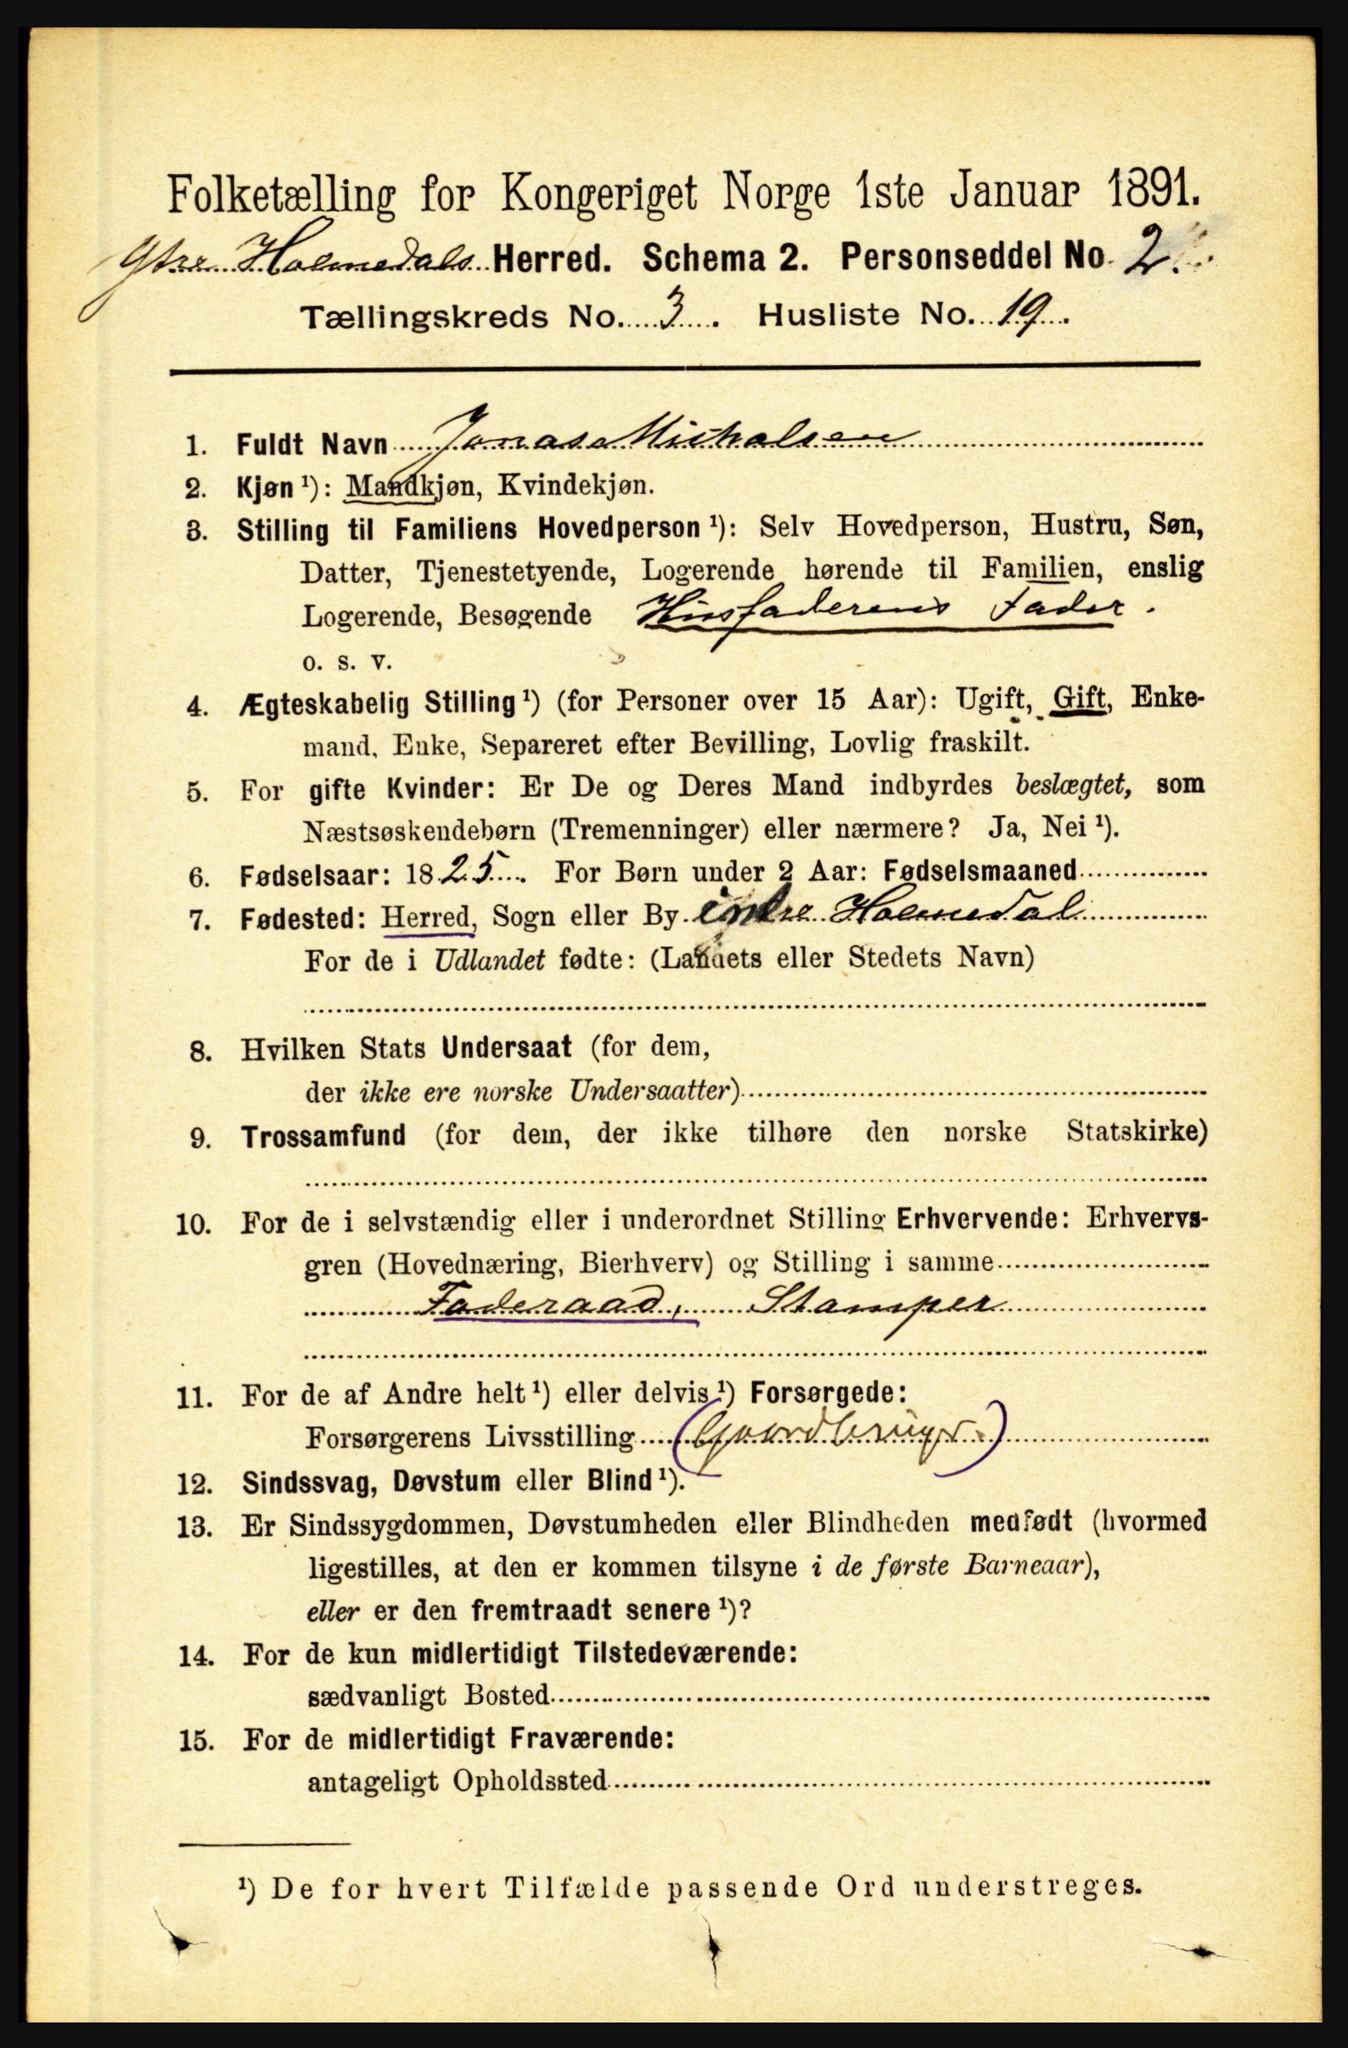 Folketælling for Kongeriget Norge 1ste Januar 1891.
Ytre Holmedals Herred. Schema 2. Personseddel No. 2.
Tællingskreds No. 3. Husliste No. 19.
1. Fuldt Navn Jonas Michalsen
2. Kjøn ¹): Mandkjøn, Kvindekjøn.
3. Stilling til Familiens Hovedperson ¹): Selv Hovedperson, Hustru, Søn,
Datter, Tjenestetyende, Logerende hørende til Familien, enslig
Logerende, Besøgende Husfaderens Fader.
o. s. v.
4. Ægteskabelig Stilling ¹) (for Personer over 15 Aar): Ugift, Gift, Enke-
mand, Enke, Separeret efter Bevilling, Lovlig fraskilt.
5. For gifte Kvinder: Er De og Deres Mand indbyrdes beslægtet, som
Næstsøskendebørn (Tremenninger) eller nærmere? Ja, Nei ¹).
6. Fødselsaar: 1825. For Børn under 2 Aar: Fødselsmaaned
7. Fødested: Herred, Sogn eller By indre Holmedal
For de i Udlandet fødte: (Landets eller Stedets Navn)
8. Hvilken Stats Undersaat (for dem,
der ikke ere norske Undersaatter)
9. Trossamfund (for dem, der ikke tilhøre den norske Statskirke)
10. For de i selvstændig eller i underordnet Stilling Erhvervende: Erhvervs-
gren (Hovednæring, Bierhverv) og Stilling i samme
Foderaad, Stamper
11. For de af Andre helt ¹) eller delvis ¹) Forsørgede:
Forsørgerens Livsstilling (Gaardbruger)
12. Sindssvag, Døvstum eller Blind ¹).
13. Er Sindssygdommen, Døvstumheden eller Blindheden medfødt (hvormed
ligestilles, at den er kommen tilsyne i de første Barneaar),
eller er den fremtraadt senere ¹)?
14. For de kun midlertidigt Tilstedeværende:
sædvanligt Bosted
15. For de midlertidigt Fraværende:
antageligt Opholdssted
¹) De for hvert Tilfælde passende Ord understreges.